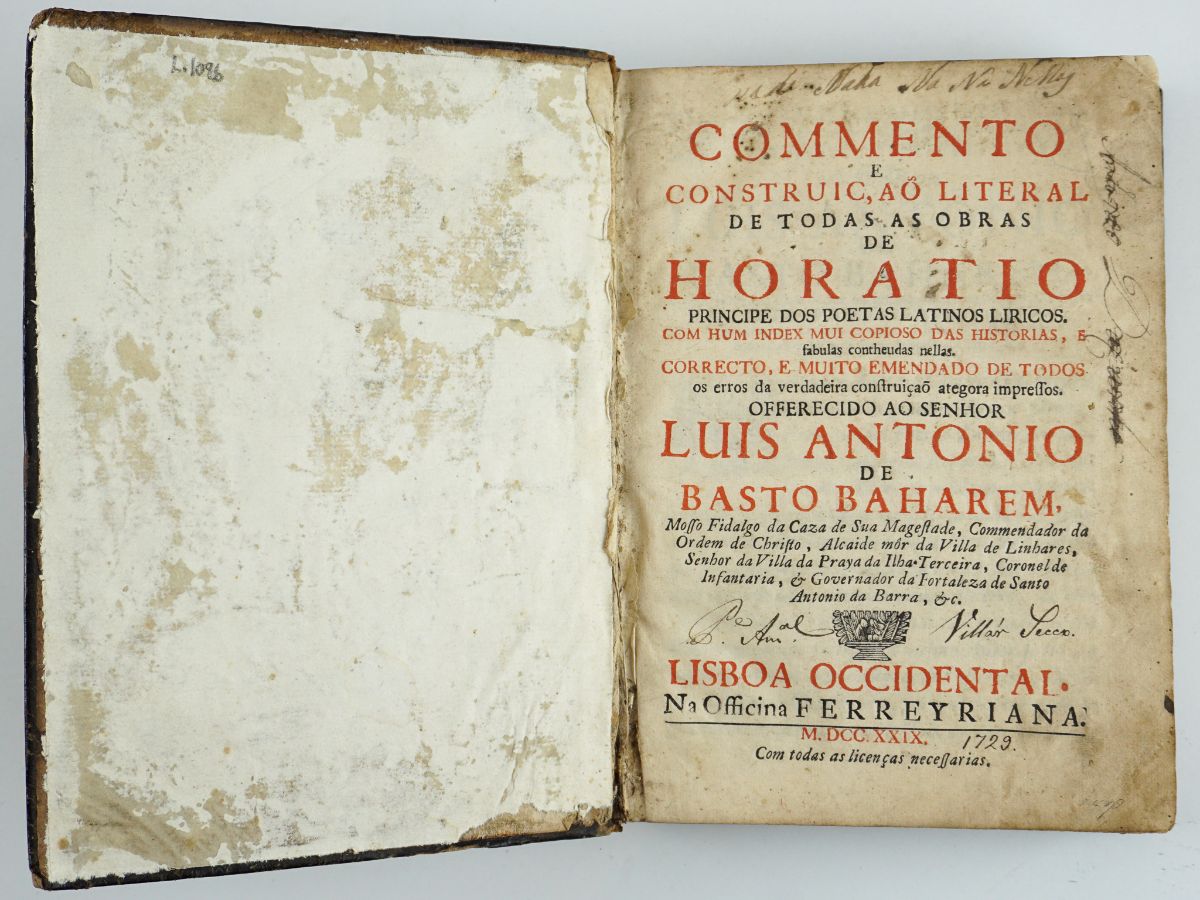 L.1096
COMMENTO
E
CONSTRUIC,AÕ LITERAL
DE TODAS AS OBRAS
DE
HORATIO
PRINCIPE DOS POETAS LATINOS LIRICOS.
COM HUM INDEX MUI COPIOSO DAS HISTORIAS, E
fabulas contheudas nellas.
CORRECTO, E MUITO EMENDADO DE TODOS
os erros da verdadeira conſtruiçaõ ategora impreſſos.
OFFERECIDO AO SENHOR
LUIS ANTONIO
DE
BASTO BAHAREM,
Moſſo Fidalgo da Caza de Sua Mageſtade, Commendador da
Ordem de Chriſto, Alcaide môr da Villa de Linhares,
Senhor da Villa da Praya da Ilha Terceira, Coronel de
Infantaria, & Governador da Fortaleza de Santo
Antonio da Barra, &c.
P.e Am.al Villár Secco.
LISBOA OCCIDENTAL.
Na Officina FERREYRIANA.
M. DCC. XXIX. 1729.
Com todas as licenças neceſſarias.